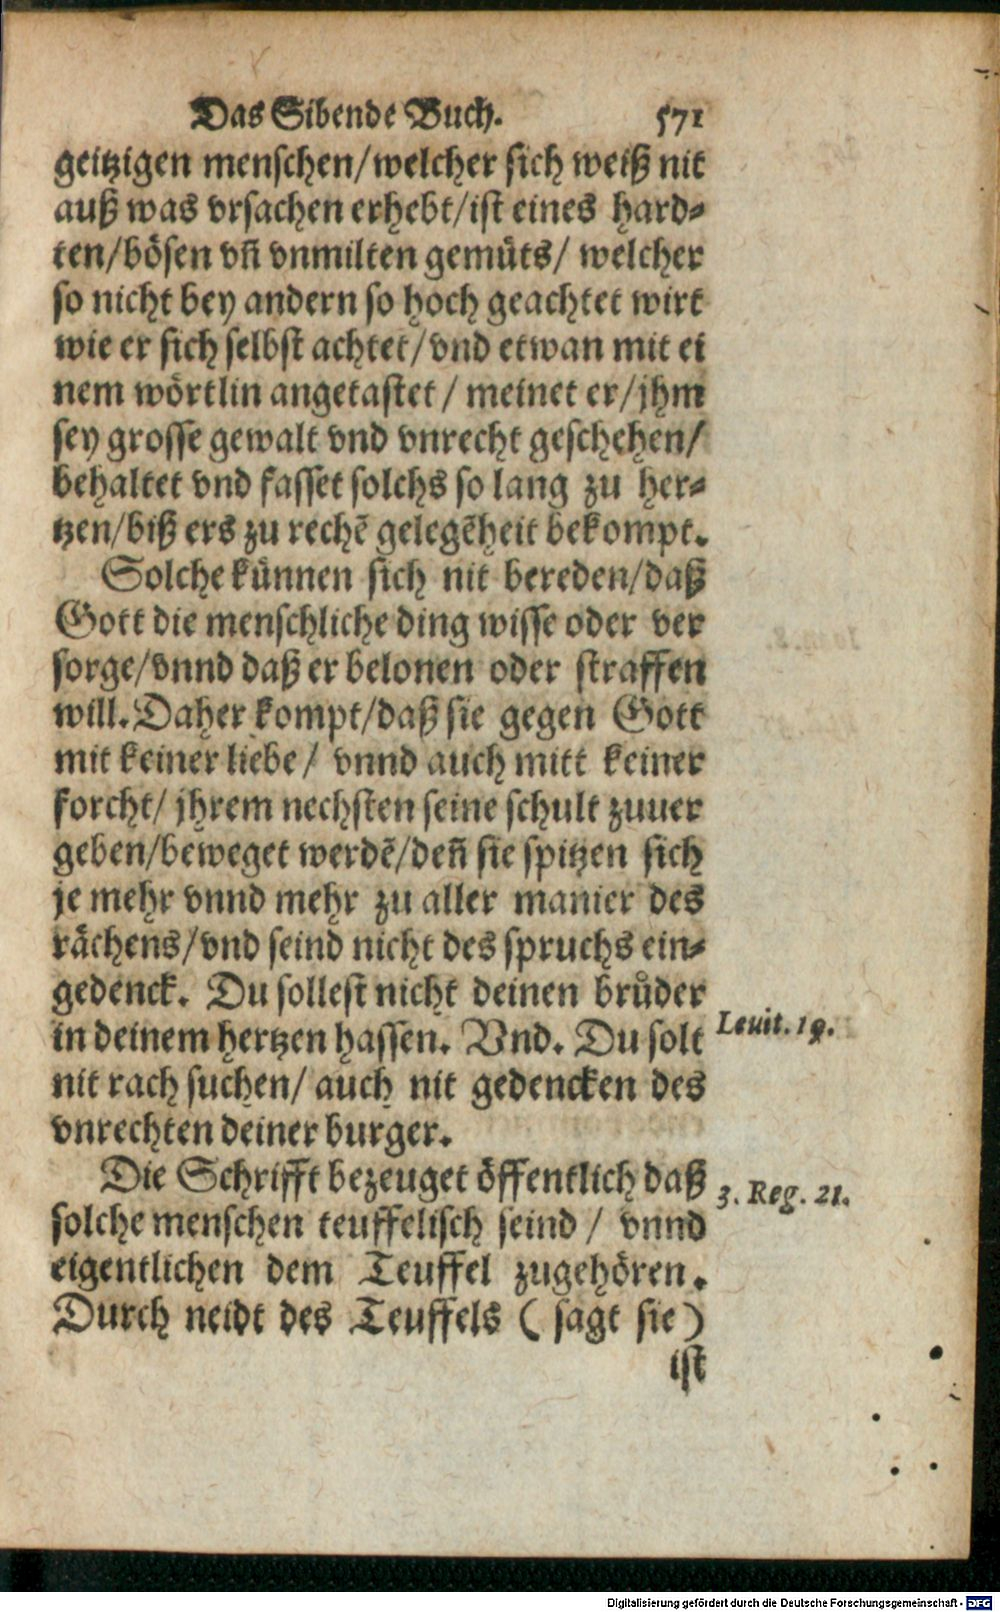 Das Sibende Buch. 571
geitzigen menschen/welcher sich weiß nit
auß was vrsachen erhebt/ist eines hard⸗
ten/bösen vñ vnmilten gemüts/ welcher
so nicht bey andern so hoch geachtet wirt
wie er sich selbst achtet/vnd etwan mit ei
nem wörtlin angetastet/ meinet er/jhm
sey grosse gewalt vnd vnrecht geschehen/
behaltet vnd fasset solchs so lang zu her⸗
tzen/biß ers zu rechẽ gelegẽheit bekompt.
Solche künnen sich nit bereden/daß
Gott die menschliche ding wisse oder ver
sorge/vnnd daß er belonen oder straffen
will. Daher kompt/daß sie gegen Gott
mit keiner liebe/ vnnd auch mitt keiner
forcht/ jhrem nechsten seine schult zuuer
geben/beweget werdẽ/deñ sie spitzen sich
je mehr vnnd mehr zu aller manier des
rächens/vnd seind nicht des spruchs ein⸗
gedenck. Du sollest nicht deinen brůder
in deinem hertzen hassen. Vnd. Du solt Leuit. 19.
nit rach suchen/ auch nit gedencken des
vnrechten deiner burger.
Die Schrifft bezeuget öffentlich daß 3. Reg. 21.
solche menschen teuffelisch seind / vnnd
eigentlichen dem Teuffel zugehören.
Durch neidt des Teuffels ( sagt sie )
ist
Digitalisierung gefördert durch die Deutsche Forschungsgemeinschaft - DFG